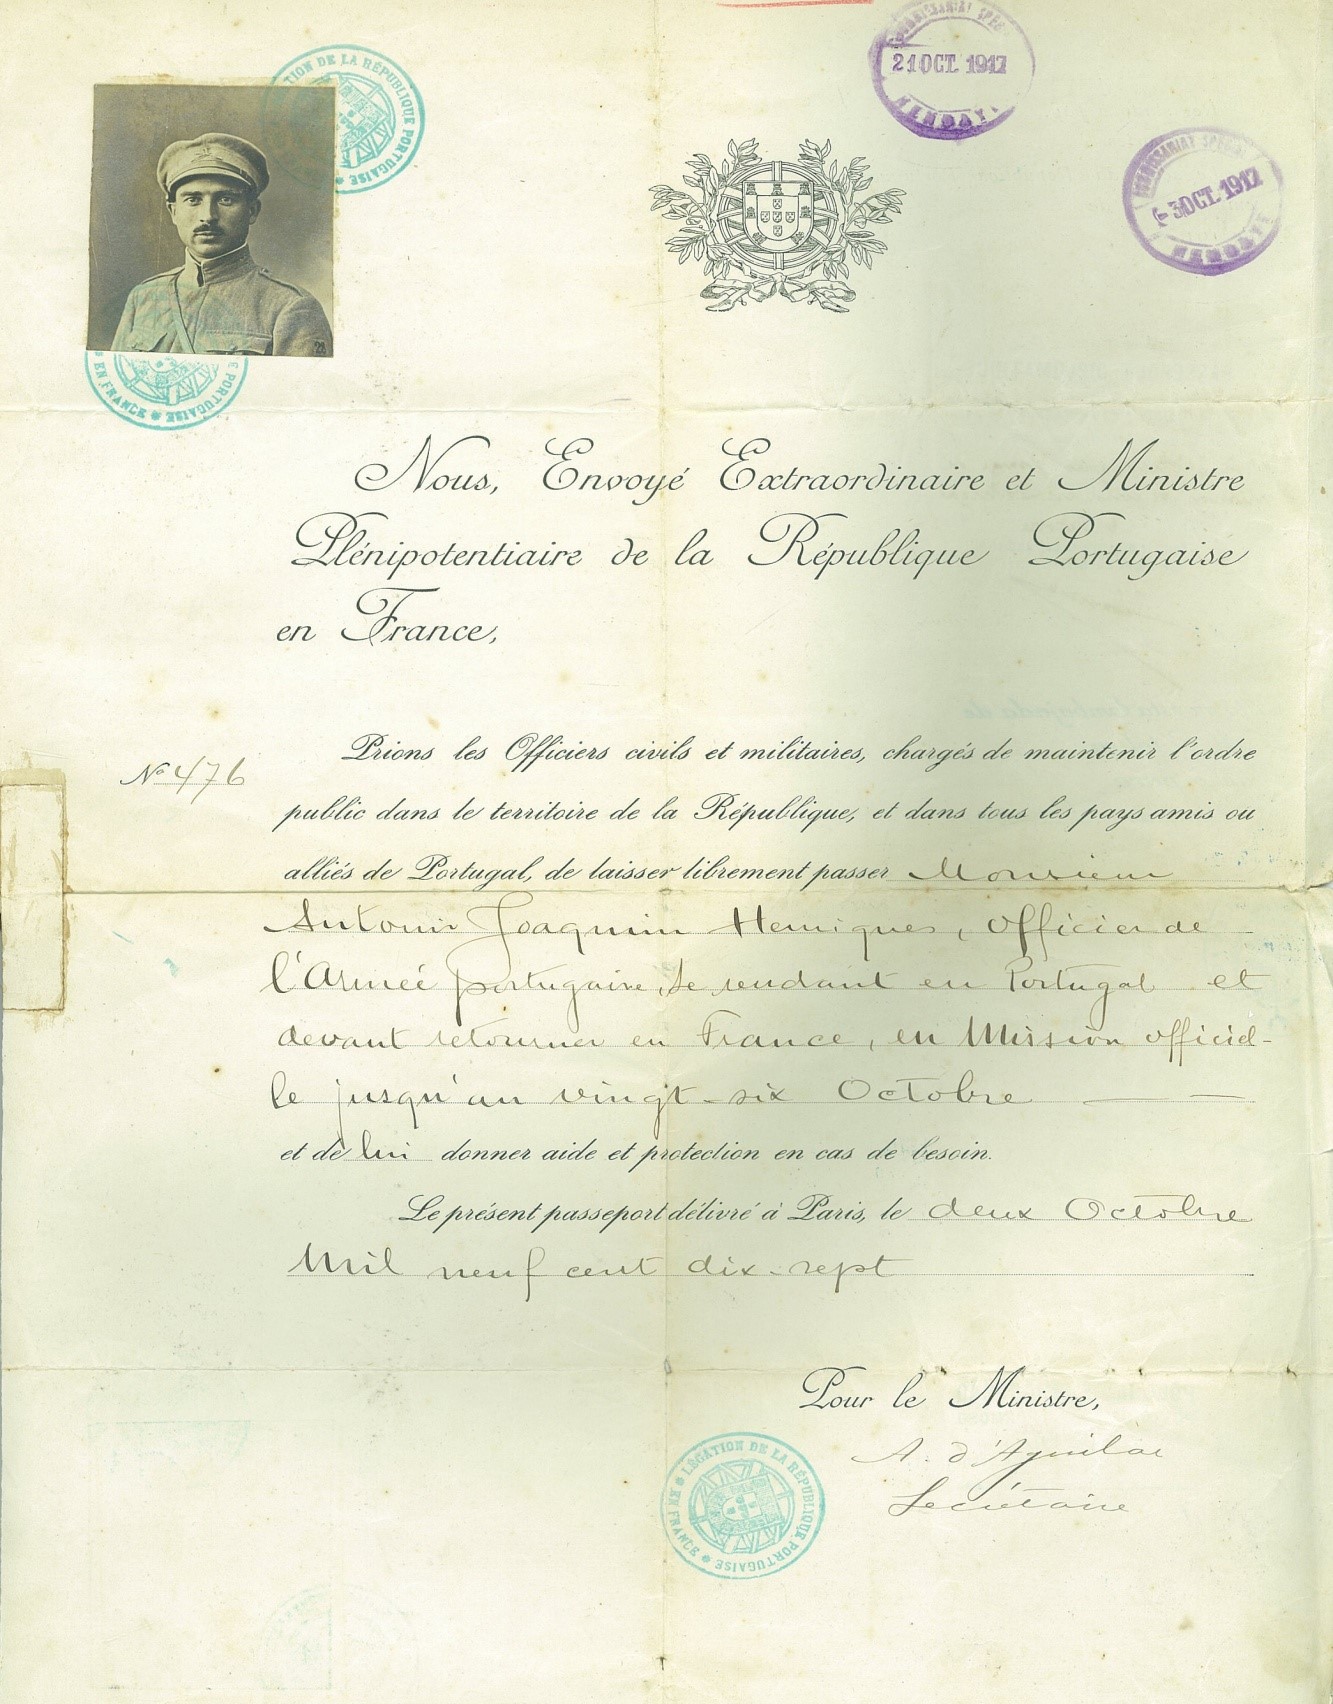 TION DE LA RÉPUBLIQUE PORTUGAISE
COMMISSARIAT SPÉC
21 OCT. 1917
HENDAYE
COMMISSARIAT SPÉCI
3 OCT. 1917
HENDAYE
28
EN FRANCE * PORTUGAISE
Nous, Envoyé Extraordinaire et Ministre
Plénipotentiaire de la République Portugaise
en France,
Nº 476
Prions les Officiers civils et militaires, chargés de maintenir l'ordre
public dans le territoire de la République, et dans tous les pays amis ou
alliés de Portugal, de laisser librement passer Monsieur
Antonio Joaquim Henriques, officier de
l'Armée portugaise, se rendant en Portugal et
devant retourner en France, en Mission officiel-
le jusqu'au vingt-six Octobre
et de lui donner aide et protection en cas de besoin.
Le présent passeport délivré à Paris, le deux Octobre
Mil neuf cent dix-sept
Pour le Ministre,
A. d'Aguilar
Secrétaire
LÉGATION DE LA RÉPUBLIQUE PORTUGAISE * EN FRANCE *